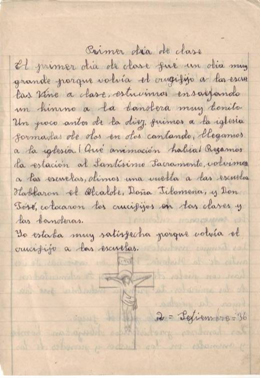 Primer dia de clase
El primer dia de clase fué un dia muy
grande porque volvia el crucifijo a la escue
las Vine a clase, estuvimos ensayando
un himno a la bandera muy bonito
Un poco antes de la diez, fuimos a la iglesia
formadas de dos en dos cantando, llegamos
a la iglesia! Qué animación habia! Rezamos
la estación al Santísimo Sacramento, volvimos
a las escuelas, dimos una vuelta a las escuela
Hablaron el Alcalde, Doña Filomena, y Don
José, colocaron los crucifijos en las clases y
las banderas.
Yo estaba muy satisfecha porque volvia el
crucifijo a las escuelas.
2 = Setiembre = 36